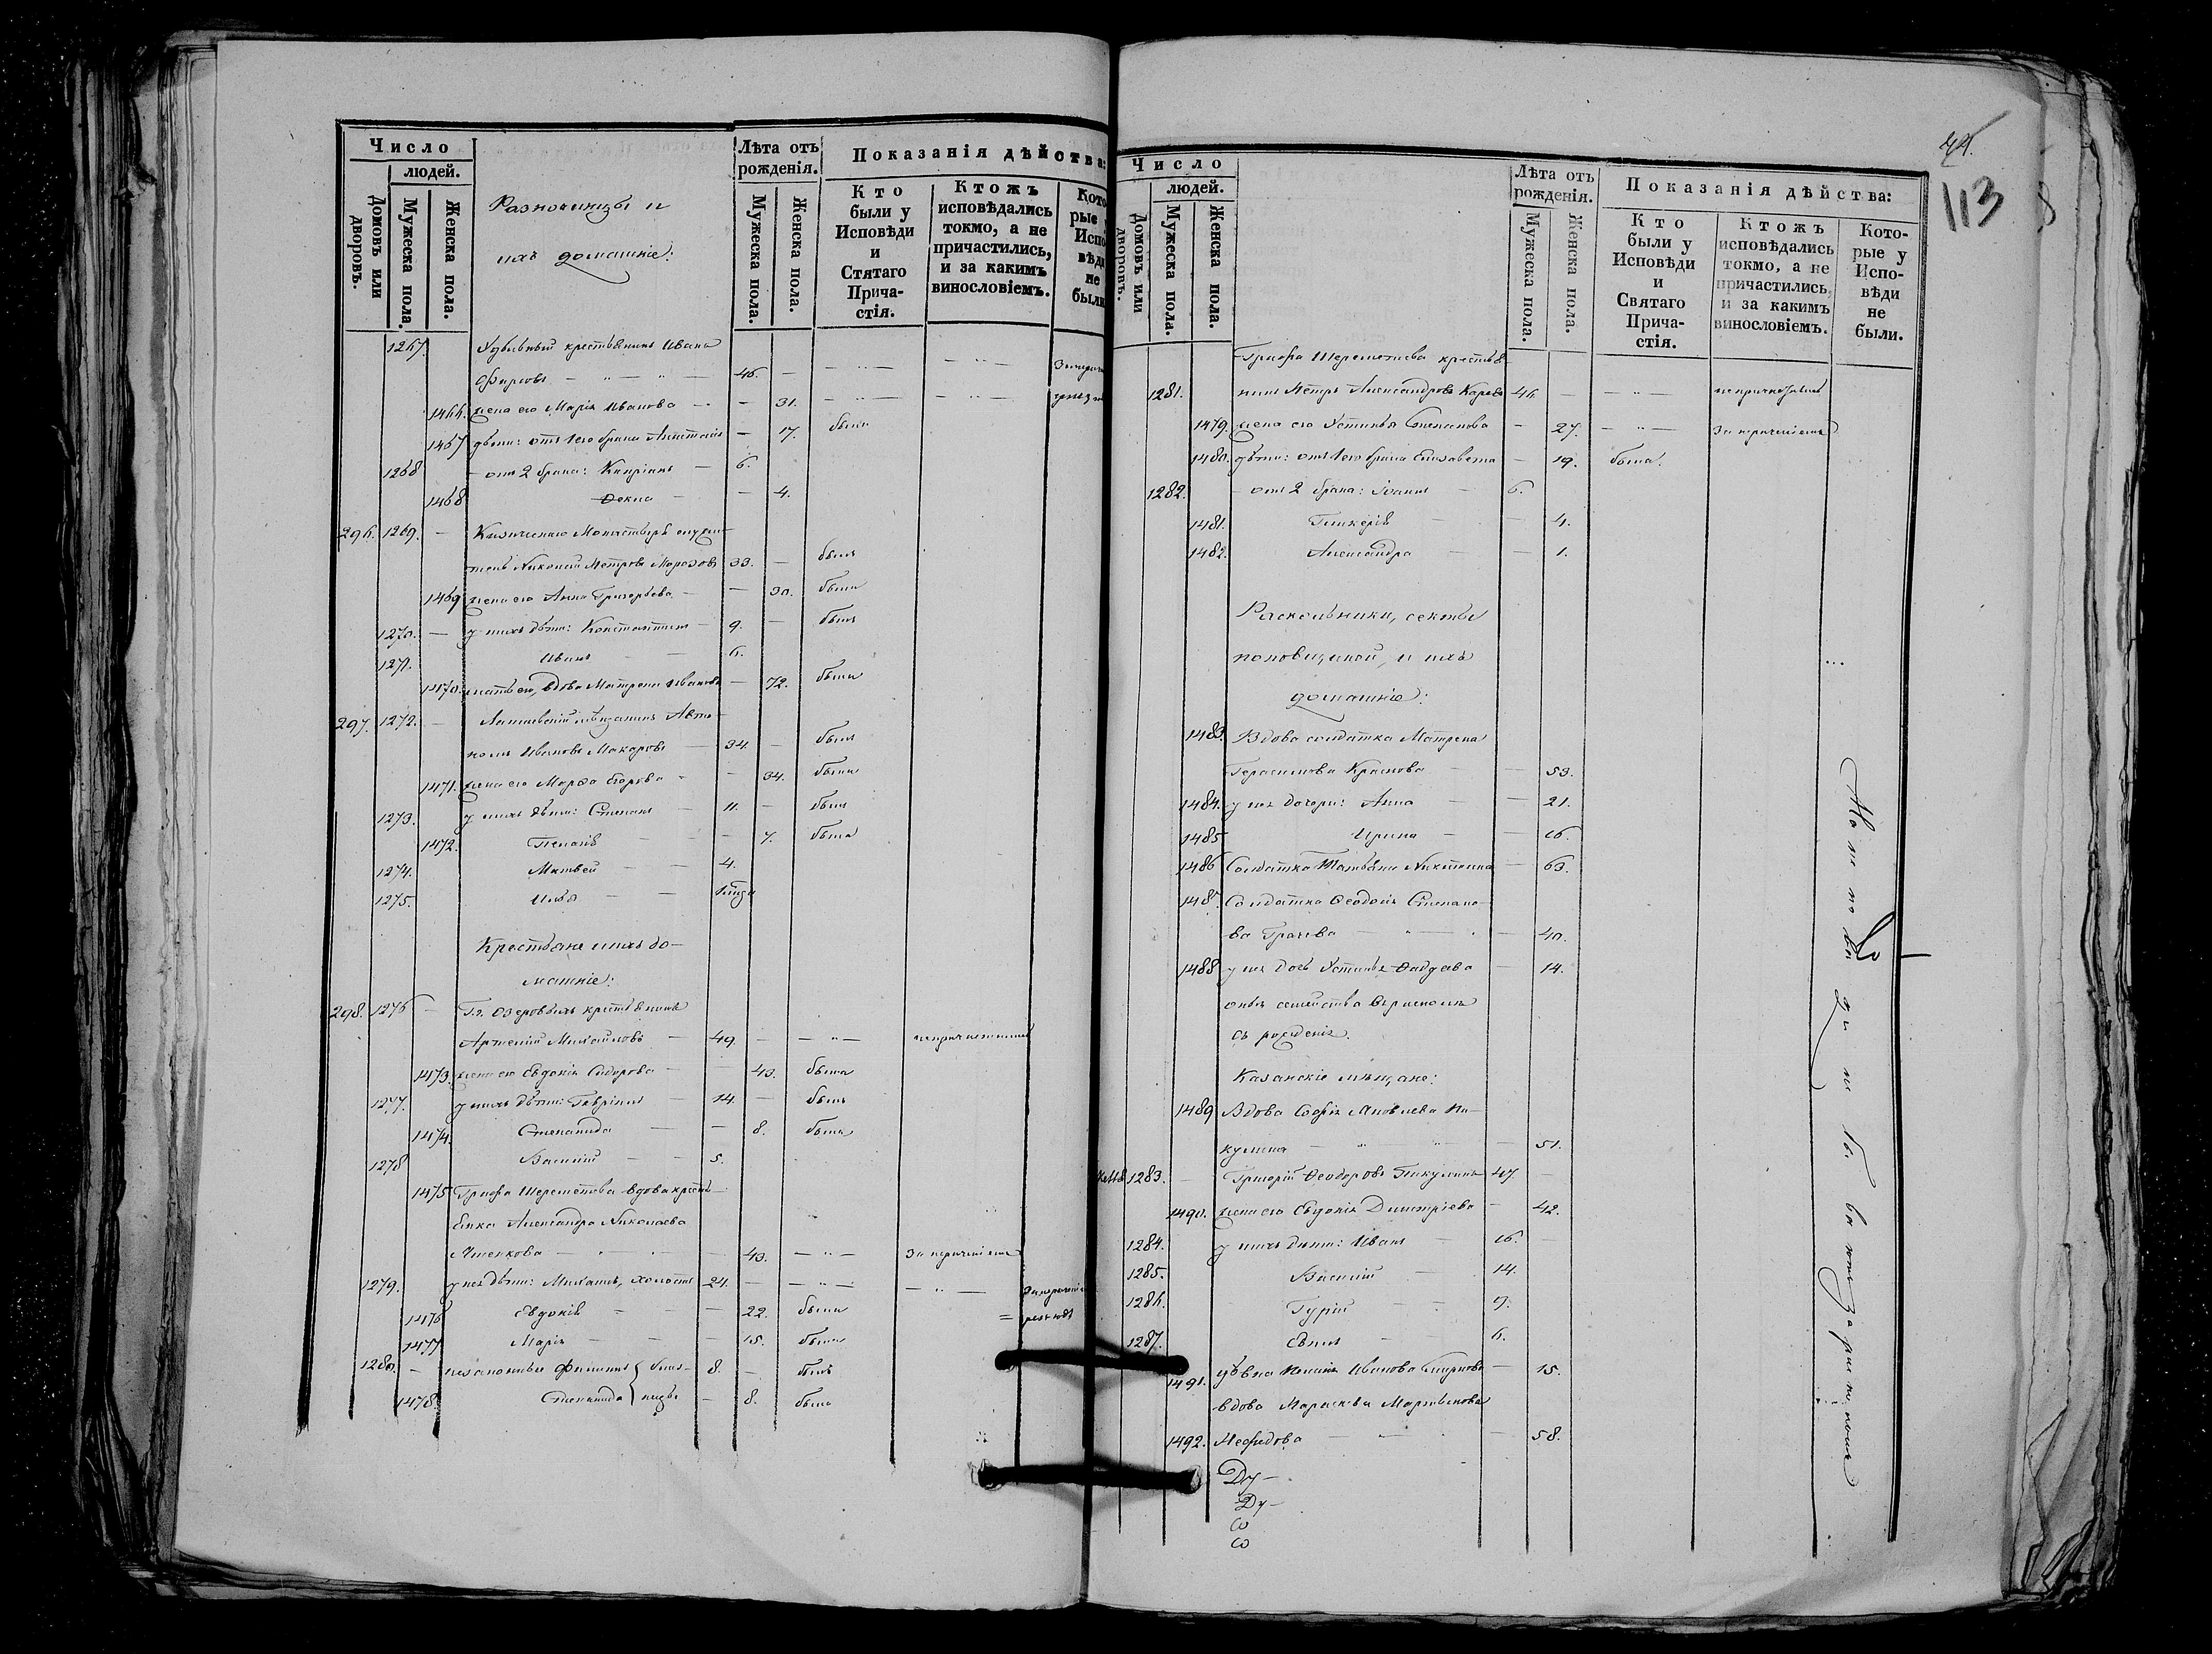 Число
людей.
Домовъ или дворовъ.
Мужеска пола.
Женска пола.
Разночинцы и
ихъ домашніе:
Лѣта отъ рожденія.
Мужеска пола.
Женска пола.
Показанія дѣйства:
Кто были у Исповѣди и Стятаго Прича-стія.
Ктожъ исповѣдались токмо, а не причастились, и за какимъ винословіемъ.
1267. Удѣльный крестьянинъ Иванъ
Фирсовъ 46.
1466. жена его Марія Иванова 31.
1467 дѣти: отъ 1го брака Анастасія 17. была
1268 отъ 2 брака: Кипріанъ 6.
1468 Ѳекла 4.
296. 1269. Кизическаго Монастыря служи-
тель Николай Петровъ Морозовъ 33. былъ
1469 жена его Анна Григорьева 30. была
1270. у нихъ дѣти: Константинъ 9. былъ
1271. Иванъ 6.
1470. мать его, вдова Матрена Иванова 72. была
297. 1272. Лаишевскій мѣщанинъ Авто-
номъ Ивановъ Макаровъ 34. былъ
1471. жена его Марѳа Егорова 34. была
1273. у нихъ дѣти: Степанъ 11. былъ
1472. Пелагія 7. была
1274. Матвей 4.
1275. Илья 1 года
Крестьяне и ихъ до-
машніе:
298. 1276 Гг. Озеровыхъ крестьянинъ
Артемій Михайловъ 49. непричастный
1473. жена его Евдокія Сидорова 43. была
1277. у нихъ дѣти: Гавріилъ 14. былъ
1474. Степанида 8. была
1278 Василій 5.
1475 Графа Шереметева вдова кресть-
янка Александра Николаева
43. За нерачен
1279. у нея дѣти: Михаилъ, холостъ 24.
1476 Евдокія 22. была
1477 Марія 15. была
1280. незаконные Филиппъ близ- 8. былъ
1478 Степанида нецы 8. была
44.
113
Число
людей.
Домовъ или дворовъ.
Мужеска пола.
Женска пола.
Лѣта отъ рожденія.
Мужеска пола.
Женска пола.
Показанія дѣйства:
Кто были у Исповѣди и Святаго Прича-стія.
Ктожъ исповѣдались токмо, а не причастились, и за какимъ винословіемъ.
Кото-рые у Испо-вѣди не были.
Графа Шереметева крестья-
1281. нинъ Петръ Александровъ 46
1479. жена его Устинья Степанова 27. За нерачен
1480. дѣти: отъ 1го брака Елизавета 19. была.
1282. отъ 2 брака: Іоаннъ 6.
1481. Гликерія 4.
1482. Александра 1.
Раскольники, секты
поповщиной, и ихъ
домашніе:
1483 Вдова солдатка Матрена
Герасимова Краснова 53.
1484. у нея дочери: Анна 21.
1485 Ирина 16.
1486 Солдатка Татьяна Никитина 63.
148 Солдатка Ѳеодосія Степано-
ва Грачева 40.
1488 у нея дочь Устинья Ѳаддеева 14.
оныя семейства въ расколѣ
съ рожденія.
Казанскіе мѣщане:
1489 Вдова Софія Яковлева Пи-
кулина 51.
1283. Григорій Ѳеодоровъ Пикулинъ 47.
1490. жена его Евдокія Димитріева 42.
1284. у нихъ дѣти: Иванъ 16.
1285. Василій 14.
1286. Гурій 9.
1287. 6.
1491. дѣвка Иванова Смирнова 15.
вдова Параскева Мартынова
1492. Меѳодова 58.
Ду-
Ду-